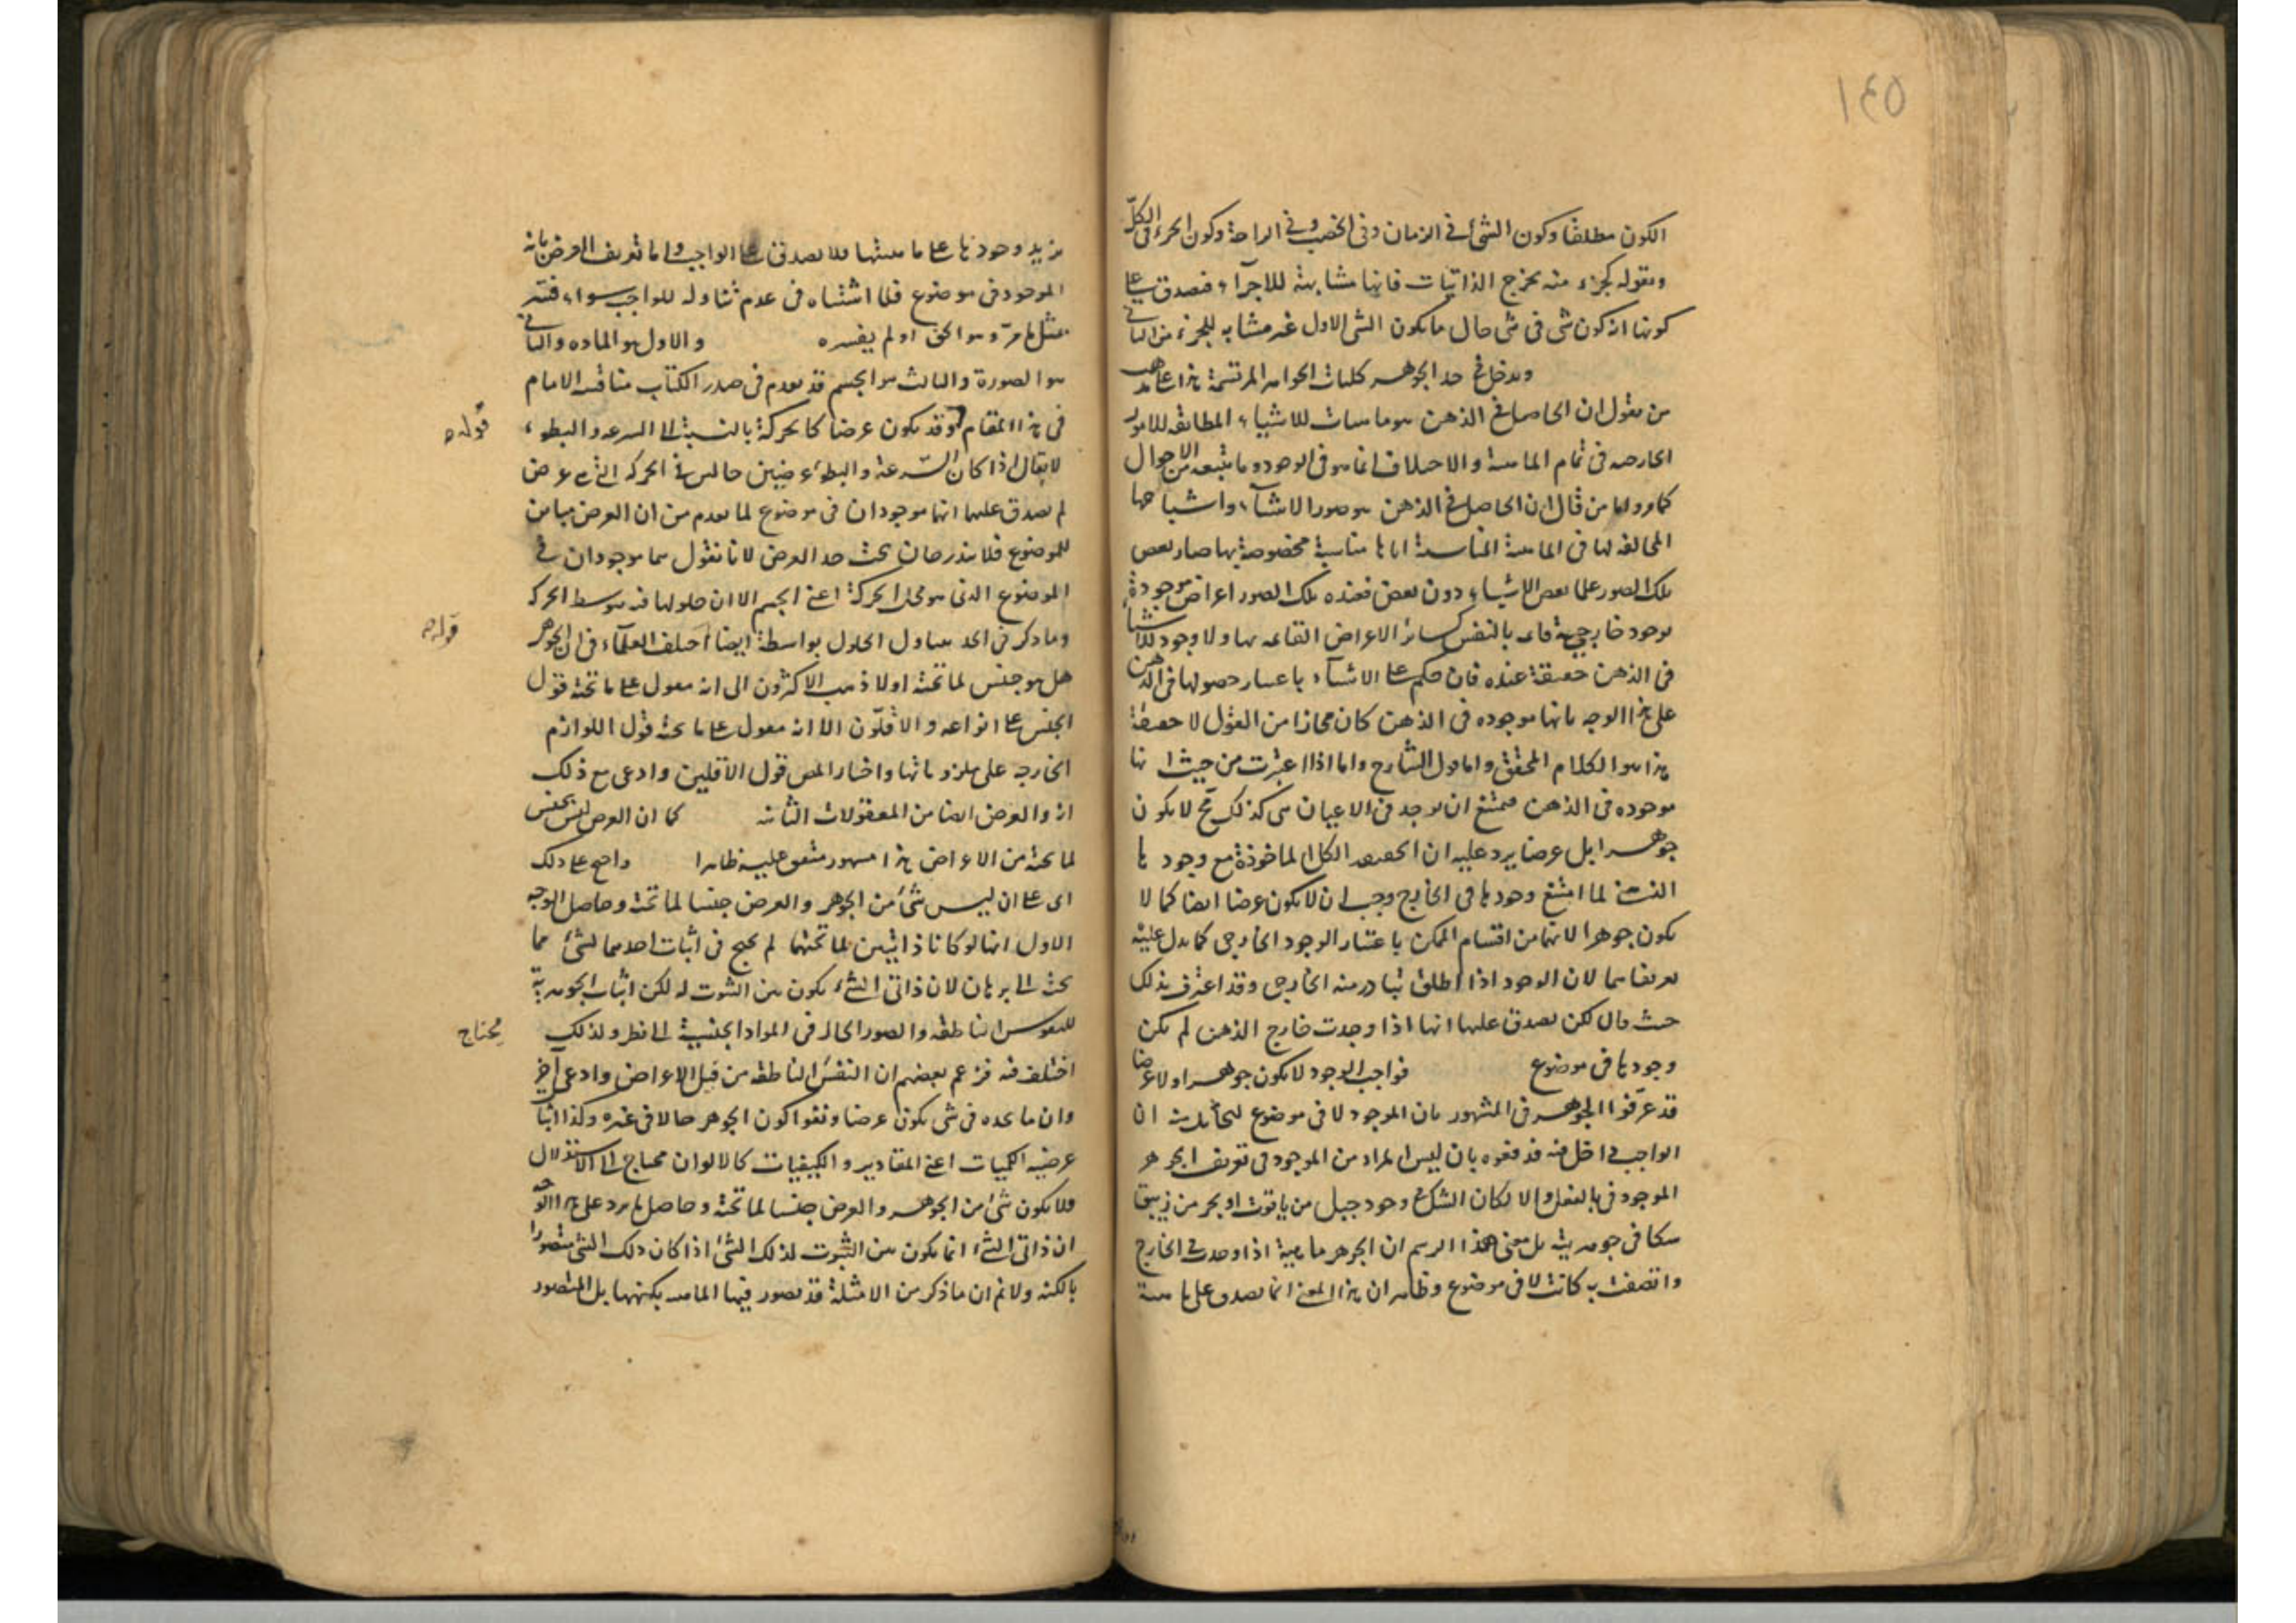 ١٤٥
الكون مطلقا وكون الشئ في الزمان وفي الخصب وفي الراحة وكون الجزء في الكلّ
وبقوله كجزء منه يخرج الذاتيات فانها مشابهة للاجزاء فصدق على
كونها انه كون شئ في شئ حال ما يكون الشئ الاول غير مشابه للجزء من الثاني
ويدخل في حد الجوهر كليات الجواهر المرتسمة هذا على مذهب
من يقول ان الحاصل في الذهن هو ماهيات للاشياء المطابقة للامور
الخارجية في تمام الماهية والاختلاف انما هو في الوجود وما يتبعه من الاحوال
كما مر واما من قال ان الحاصل في الذهن هو صور الاشياء واشباحها
المخالفة لها في الماهية المناسبة اياها مناسبة مخصوصة بها صار بعض
تلك الصور علما ببعض الاشياء دون بعض فعنده تلك الصور اعراض موجودة
بوجود خارجي قائمة بالنفس كسائر الاعراض القائمة بها ولا وجود للاشياء
في الذهن حقيقة عنده فان حكم على الاشياء باعتبار حصولها في الذهن
على هذا الوجه بانها موجوده في الذهن كان مجازا من القول لا حقيقة
هذا هو الكلام المحقق واما قول الشارح واما اذا اعتبرت من حيث انها
موجوده في الذهن فيمتنع ان توجد في الاعيان هي كذلك فح لا يكون
جوهرا بل عرضا يرد عليه ان الحقيقة الكلية الماخوذة مع وجودها
الذهني لما امتنع وجودها في الخارج وجب ان لا يكون عرضا ايضا كما لا
يكون جوهرا لانهما من اقسام الممكن باعتبار الوجود الخارجي كما يدل عليه
تعريفاهما لان الوجود اذا اطلق تبادر منه الخارجي وقد اعترف بذلك
حيث قال لكن يصدق عليها انها اذا وجدت خارج الذهن لم يكن
وجودها في موضوع فواجب الوجود لا يكون جوهرا ولا عرضا
قد عرّفوا الجوهر في المشهور بان الموجود لا في موضوع ان
الواجب داخل فيه فدفعوه بان ليس المراد من الموجود في تعريف الجوهر
الموجود بالفعل والا لكان الشك في وجود جبل من ياقوت او بحر من زيبق
شكا في جوهريته بل معنى هذا الرسم ان الجوهر ماهية اذا وجدت في الخارج
واتصفت به كانت لا في موضوع وظاهر ان هذا المعنى انما يصدق على ماهية
يزيد وجودها على ماهيتها فلا يصدق على الواجب واما تعريف العرض بانه
الموجود في موضوع فلا اشتباه في عدم تناوله للواجب سواء فسّر
بمثل ما مرّ وهو الحق او لم يفسره والاول هو الماده والثاني
هو الصورة والثالث هو الجسم قد تقدم في صدر الكتاب مناقشة الامام
في هذا المقام وقد يكون عرضا كالحركة بالنسبة الى السرعة والبطوء
قوله
لا يقال اذا كان السّرعة والبطوء عرضين حالين في الحركة التي هي عرض
لم يصدق عليهما انهما موجودان في موضوع لما تقدم من ان العرض مباين
للموضوع فلا يندرجان تحت حد العرض لانا نقول هما موجودان في
الموضوع الذي هو محل الحركة اعني الجسم الا ان حلولهما فيه بتوسط الحركة
وما ذكر في الحد يتناول الحلول بواسطة ايضا اختلف العلماء في ان الجوهر
قوله
هل هو جنس لما تحته اولا ذهب الاكثرون الى انه مقول على ما تحته قول
الجنس على انواعه والاقلّون الا انه مقول على ما تحته قول اللوازم
الخارجه على ملزوماتها واختار المص قول الاقلين وادعى مع ذلك
انه والعرض ايضا من المعقولات الثانيه كما ان العرض ليس بجنس
لما تحته من الاعراض هذا مشهور متفق عليه ظاهرا واحتج على ذلك
اى على ان ليس شئ من الجوهر والعرض جنسا لما تحته وحاصل الوجه
الاول انهما لو كانا ذاتيين لما تحتهما لم يحتج في اثبات احدهما لشئ مما
تحته الى برهان لان ذاتى الشئ يكون بين الثبوت له لكن اثبات الجوهرية
للنفوس الناطقه والصور الحالة في المواد الجنسية الى نظر ولذلك
يحتاج
اختلف فيه فزعم بعضهم ان النفس الناطقه من قبل الاعراض وادعى آخر
وان ما يحده في شئ يكون عرضا ونفوا كون الجوهر حالا في غيره وكذا اثبات
عرضيه الكميات اعني المقادير والكيفيات كالالوان محتاج الى الاستدلال
فلا يكون شئ من الجوهر والعرض جنسا لما تحته وحاصل ما يرد على هذا الوجه
ان ذاتى الشئ انما يكون بين الثبوت لذلك الشئ اذا كان ذلك الشئ متصورا
بالكنه ولا نم ان ما ذكر من الامثلة قد تصور فيها الماهيه بكنهها بل المتصور